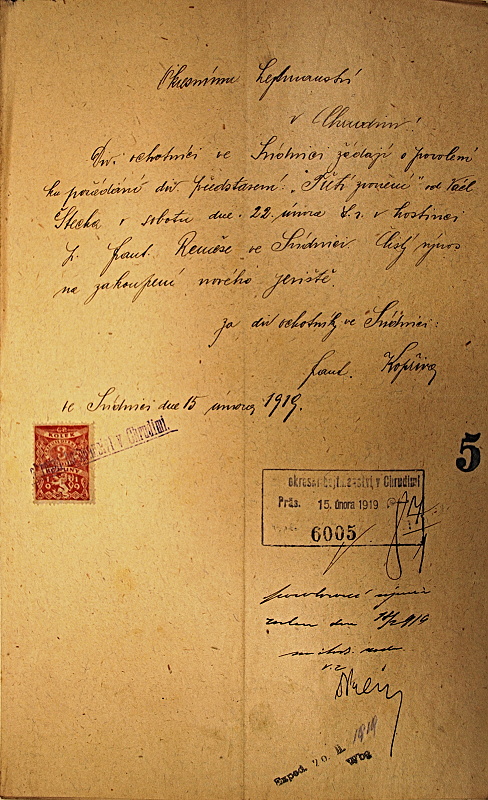 Okresnímu hejtmanství
v Chrudimi!
Div. ochotníci ve Snídnici žádají o povolení
ku pořádání div. představení "Třetí zvonění" od Václ.
Štecha v sobotu dne 22. února t. r. v hostinci
p. Frant. Remeše ve Snídnici. Čistý výnos
na zakoupení nového jeviště.
Za div. ochotníky ve Snídnici:
Frant. Kopřiva
Ve Snídnici dne 15 února 1919.
KOLEK
v Chrudimi.
5
okresní hejtmanství v Chrudimi
Präs. 15. února 1919
6005
dne 1919
v. z.
Exped. 20. II. 1919
Wbg